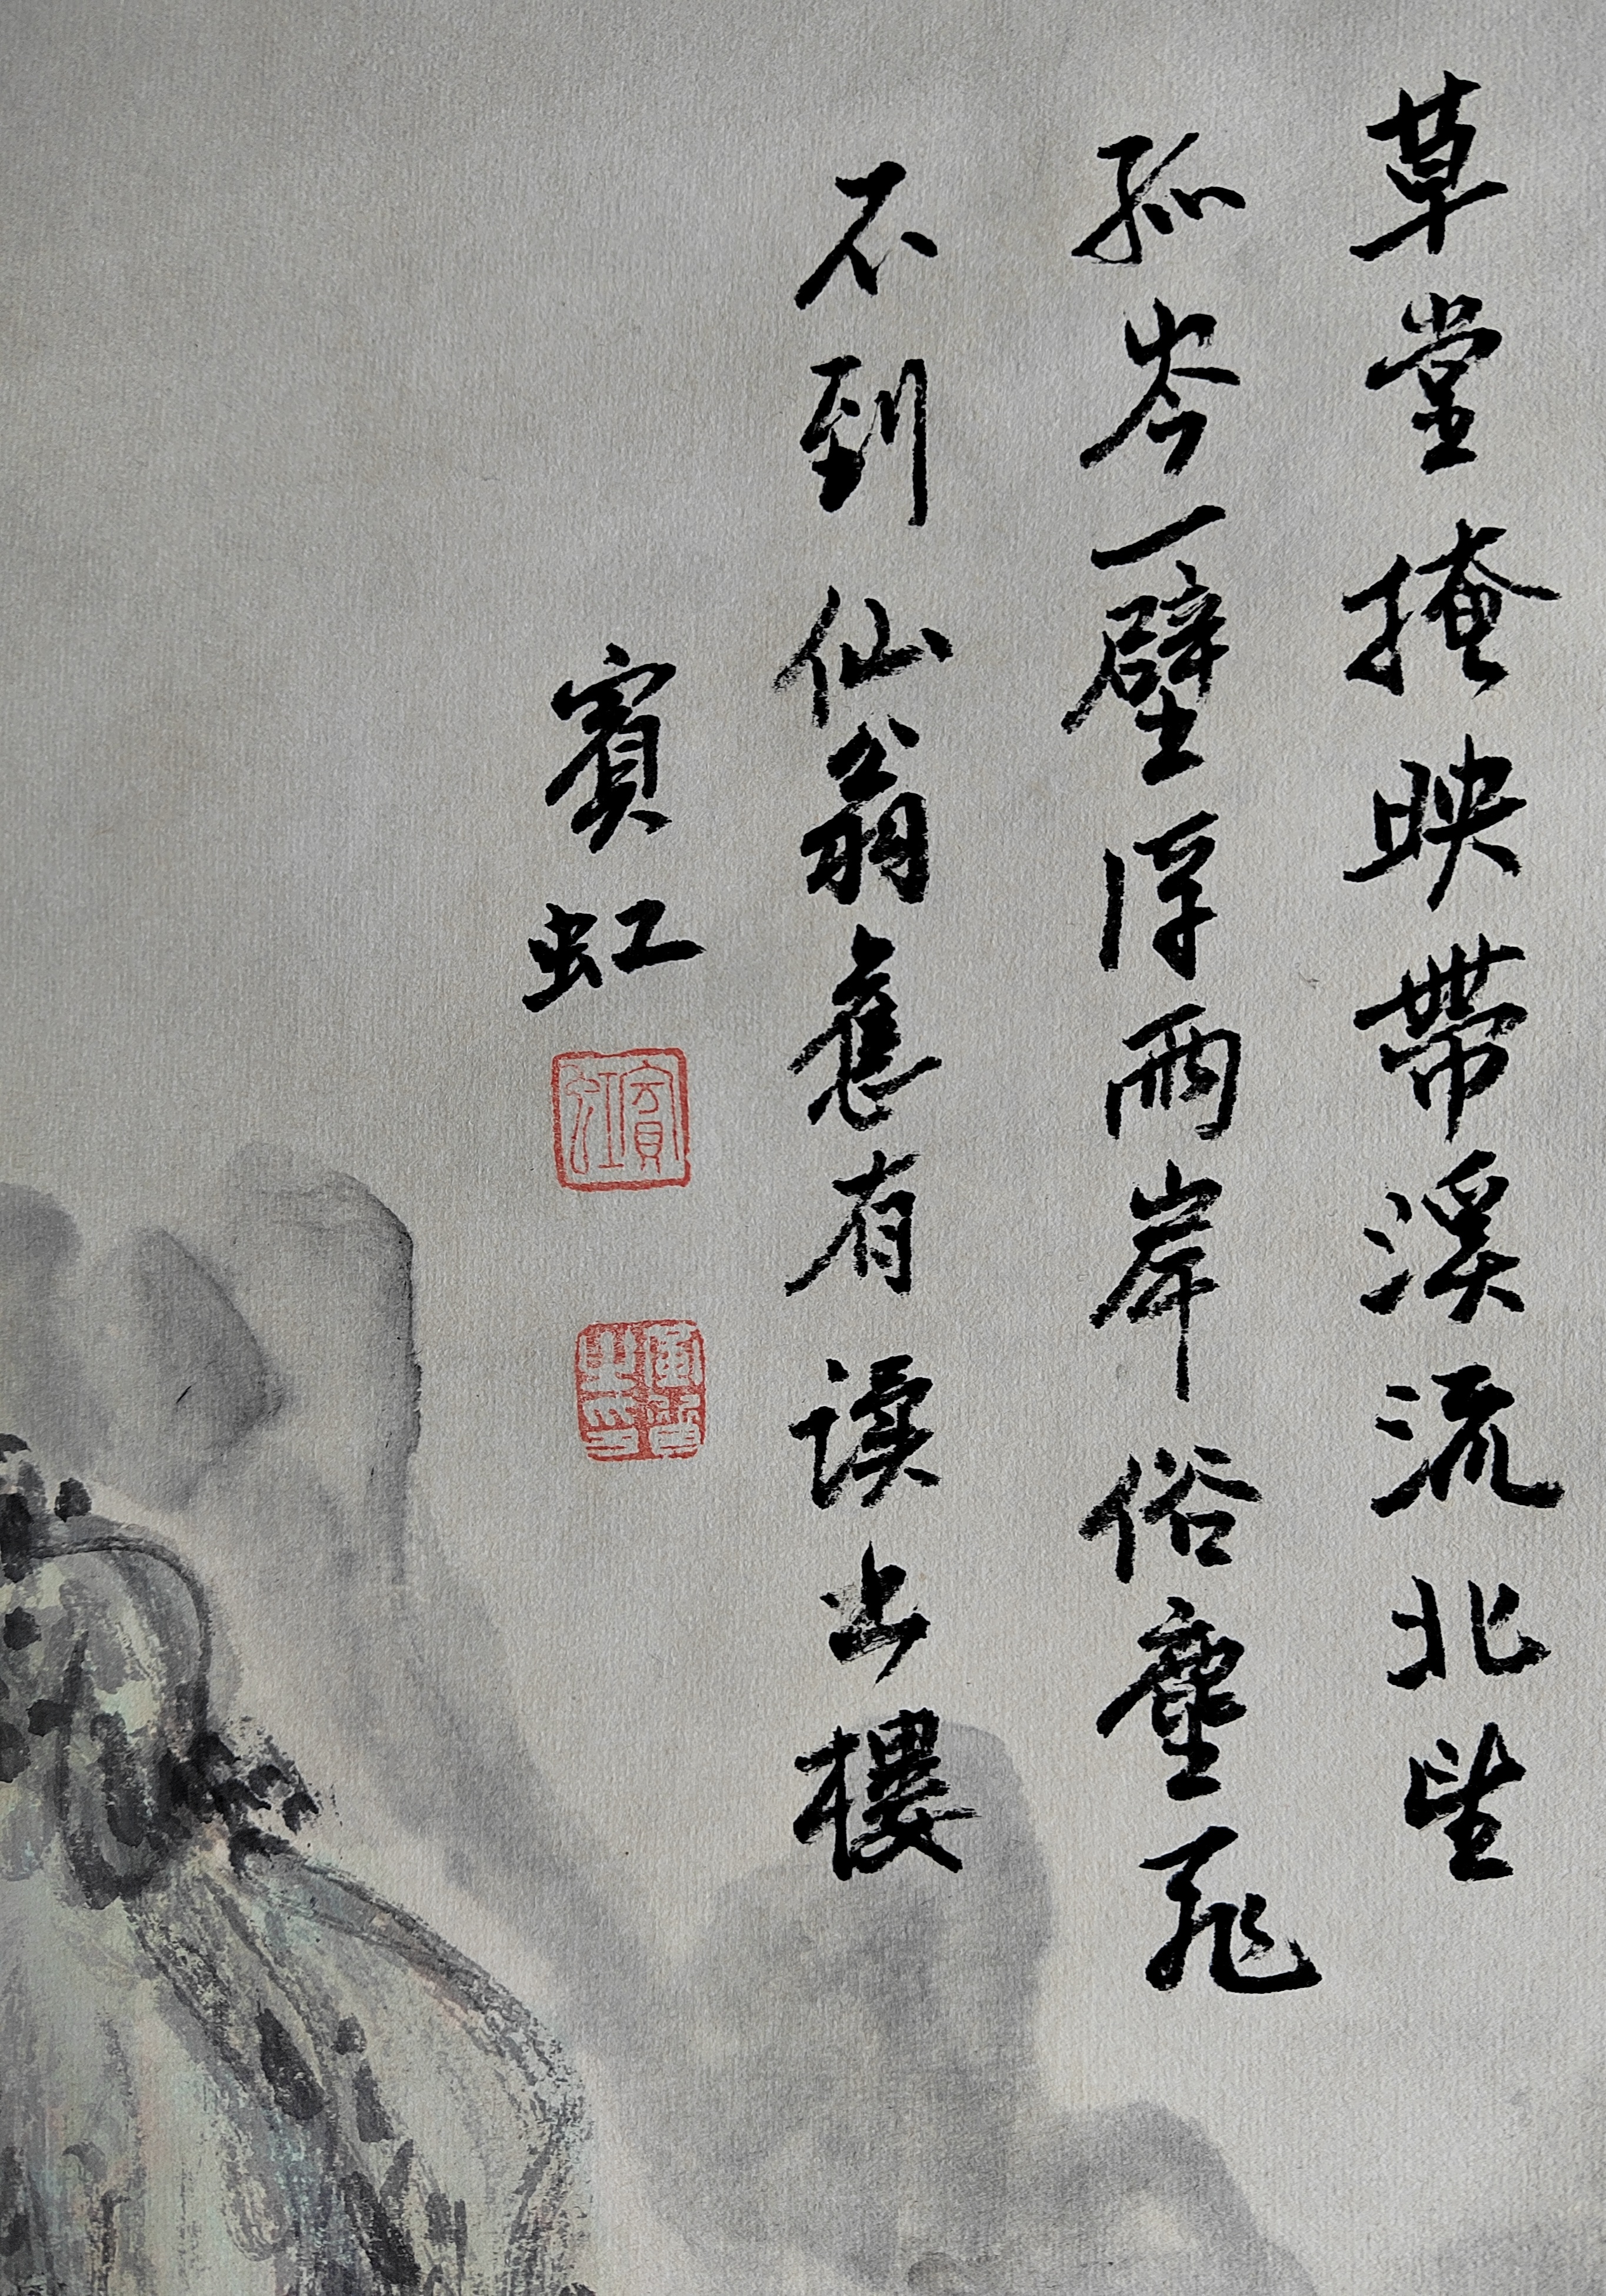 草堂掩映帶溪流北望
孤岑一壁浮兩岸俗塵飛
不到仙翁舊有讀出樓
賓虹
賓虹
黃質之印